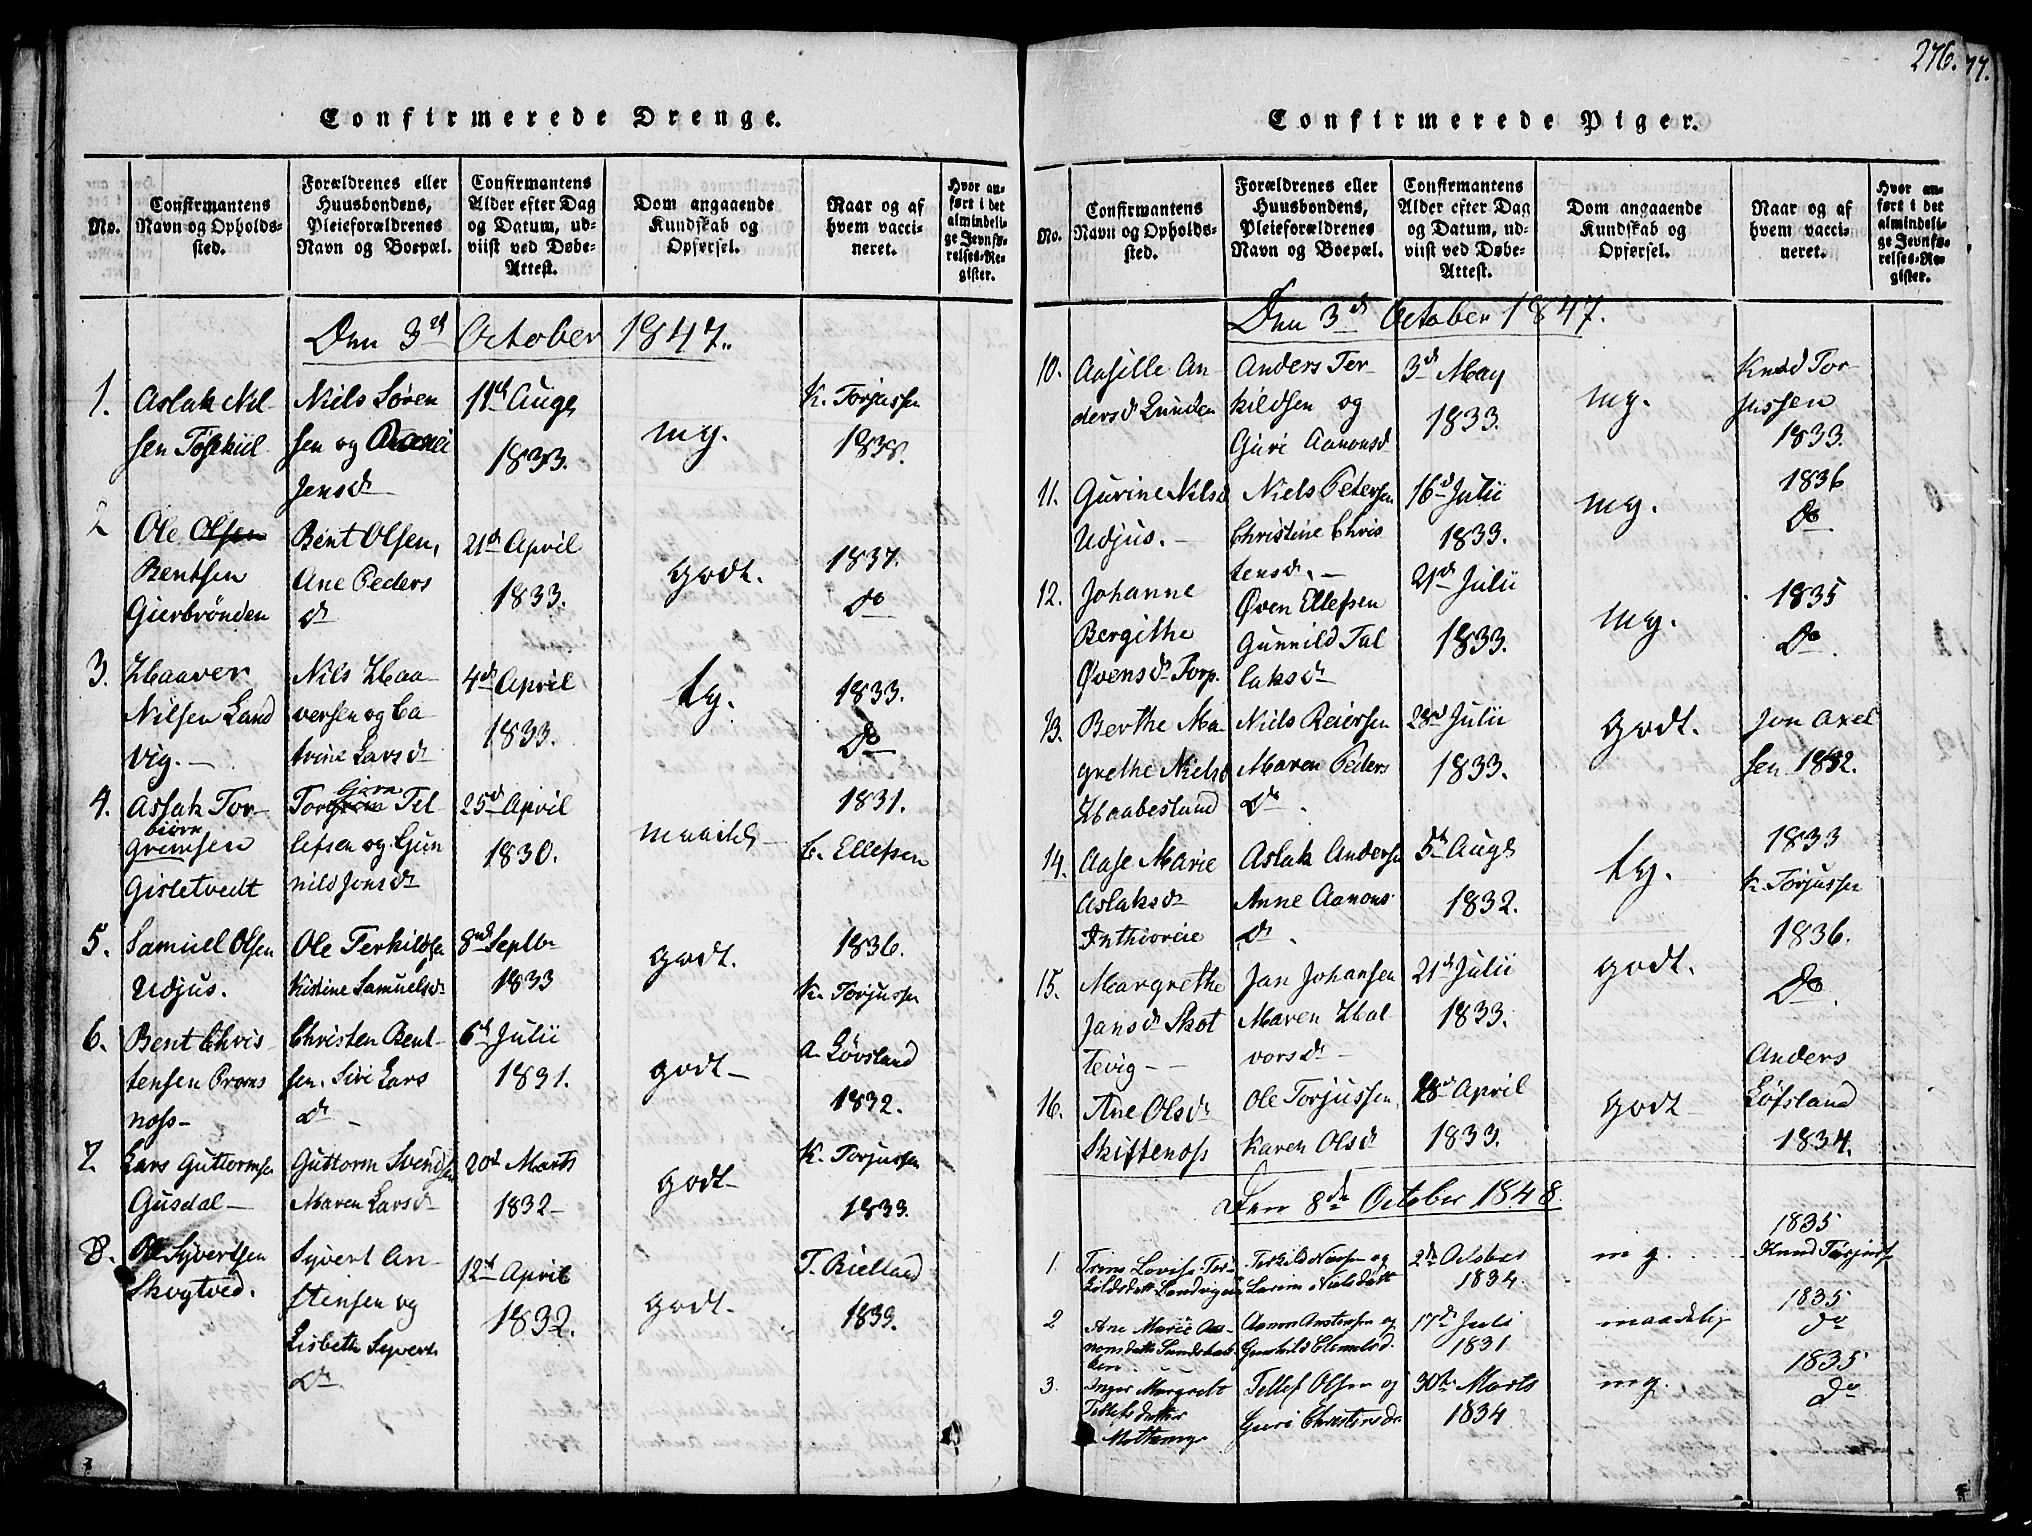 276.
77.
Confirmerede Drenge.
No.
Confirmantens
Navn og Opholds-
sted.
Forældrenes eller
Huusbondens,
Pleieforældrenes
Navn og Boepæl.
Confirmantens
Alder efter Dag
og Datum, ud-
viist ved Døbe-
Attest.
Dom angaaende
Kundskab og
Opførsel.
Naar og af
hvem vacci-
neret.
Hvor an-
ført i det
almindeli-
ge Jevnfø-
relses-Re-
gister.
Den 3d October 1847.
1.
Aslak Nil-
sen Tøskiil
Niels Søren
sen og
Jensdr
11th Augs
1833.
mg.
K. Torjussen
1838.
2
Ole Olsen
Bentsen
Gierbrönden
Bent Olsen,
Ane Peders
dr
21th April
1833.
godt.
1837.
Do
3.
Haaver
Nilsen Land
vig.
Nils Haa-
versen og Ca-
trine Larsdr
4d April
1833.
tg.
1833.
Do
4.
Aslak Tor-
biørn
gremsen
Gisletvedt
Torgrem Tel-
lefsen og Gun
nild Jonsdr
25d April
1830.
maadel
1831.
C. Ellefsen
5.
Samuel Olsen
Udjus.
Ole Terkildsen
Kistine Samuelsdr
8nd Septbr
1833
godt.
1836.
K. Torjussen
6.
Bent Chris-
tensen Proms
noss-
Christen Bent-
sen. Siri Lars
dr
6th Julii
1831.
godt-
A Løvsland
1832.
7.
Lars Guttormsen
Gusdal-
Guttorm Svendsen
Maren Larsdr
20d Marts
1832-
godt-
K. Torjussen
1833.
8.
Ole Syvertsen
Skogtved.
Syvert An-
stensen og
Lisbeth Syverts
Dr.
12d April
1832.
godt-
T. Rielland
1839.
Confirmerede Piger.
No.
Confirmantens
Navn og Opholds-
sted.
Forældrenes eller
Huusbondens,
Pleieforældrenes
Navn og Boepæl.
Confirmantens
Alder efter Dag
og Datum, ud-
viist ved Døbe-
Attest.
Dom angaaende
Kundskab og
Opførsel.
Naar og af
hvem vacci-
neret.
Hvor an-
ført i det
almindeli-
ge Jevnfø-
relses-Re-
gister.
Den 3d October 1847.
10.
Aasille An
dersd Lunden
Anders Ter-
kildsen og
Guri Aanonsd
3d May
1833.
mg.
Knud Tor-
jussen
1833.
11.
Gurine Nilsd
Udjus.-
Niels Petersen
Christine Chris
tensdr.-
16d Julii
1833.
mg.
1836
Do
12.
Johanne
Bergithe
Øvensdr Torp.
Øven Ellefsen
Gunnild Tal
laksdr
21d Julii
1833.
mg.
1835
Do
13.
Berthe Ma
grethe Nielsd
Haabesland
Niels Reiersen
Maren Peders
Dr.
28d Julii
1833.
godt.
Jon Axel
sen 1832.
14.
Aase Marie
Aslaksdr
Inthioreie
Aslak Andersen
Anne Aanons
Dr.
5th Augs
1832.
tg.
1833
K. Torjussen
15.
Margrethe
Jansdr Skot
tevig--
Jan Johansen
Maren Hal
vorsdr-
21d Julii
1833.
godt.
1836.
Do.
16.
Ane Olsdr
Skiftenoss
Ole Torjussen
Karen Olsd
18d April
1833.
godt-
Anders
Løfsland
1834.
Den 8de October 1848.
1.
Trine Lovise Ter-
kildsdatt Landvigen
Terkild og
Larine Nielsdatt
2de October
1834.
mg.
1835
Knud Torjuss
2
Ane Marie Aa-
nonsdatt
ken.
Aanon Anstensen og
Gunhild Clemetsd.
17de Juli
1831
maadelig
1835
Do
3.
Inger Margret
Tellefsdatter
Tellef Olsen og
Guri Christensdr
30te Marts
1834
mg.
1835
Do